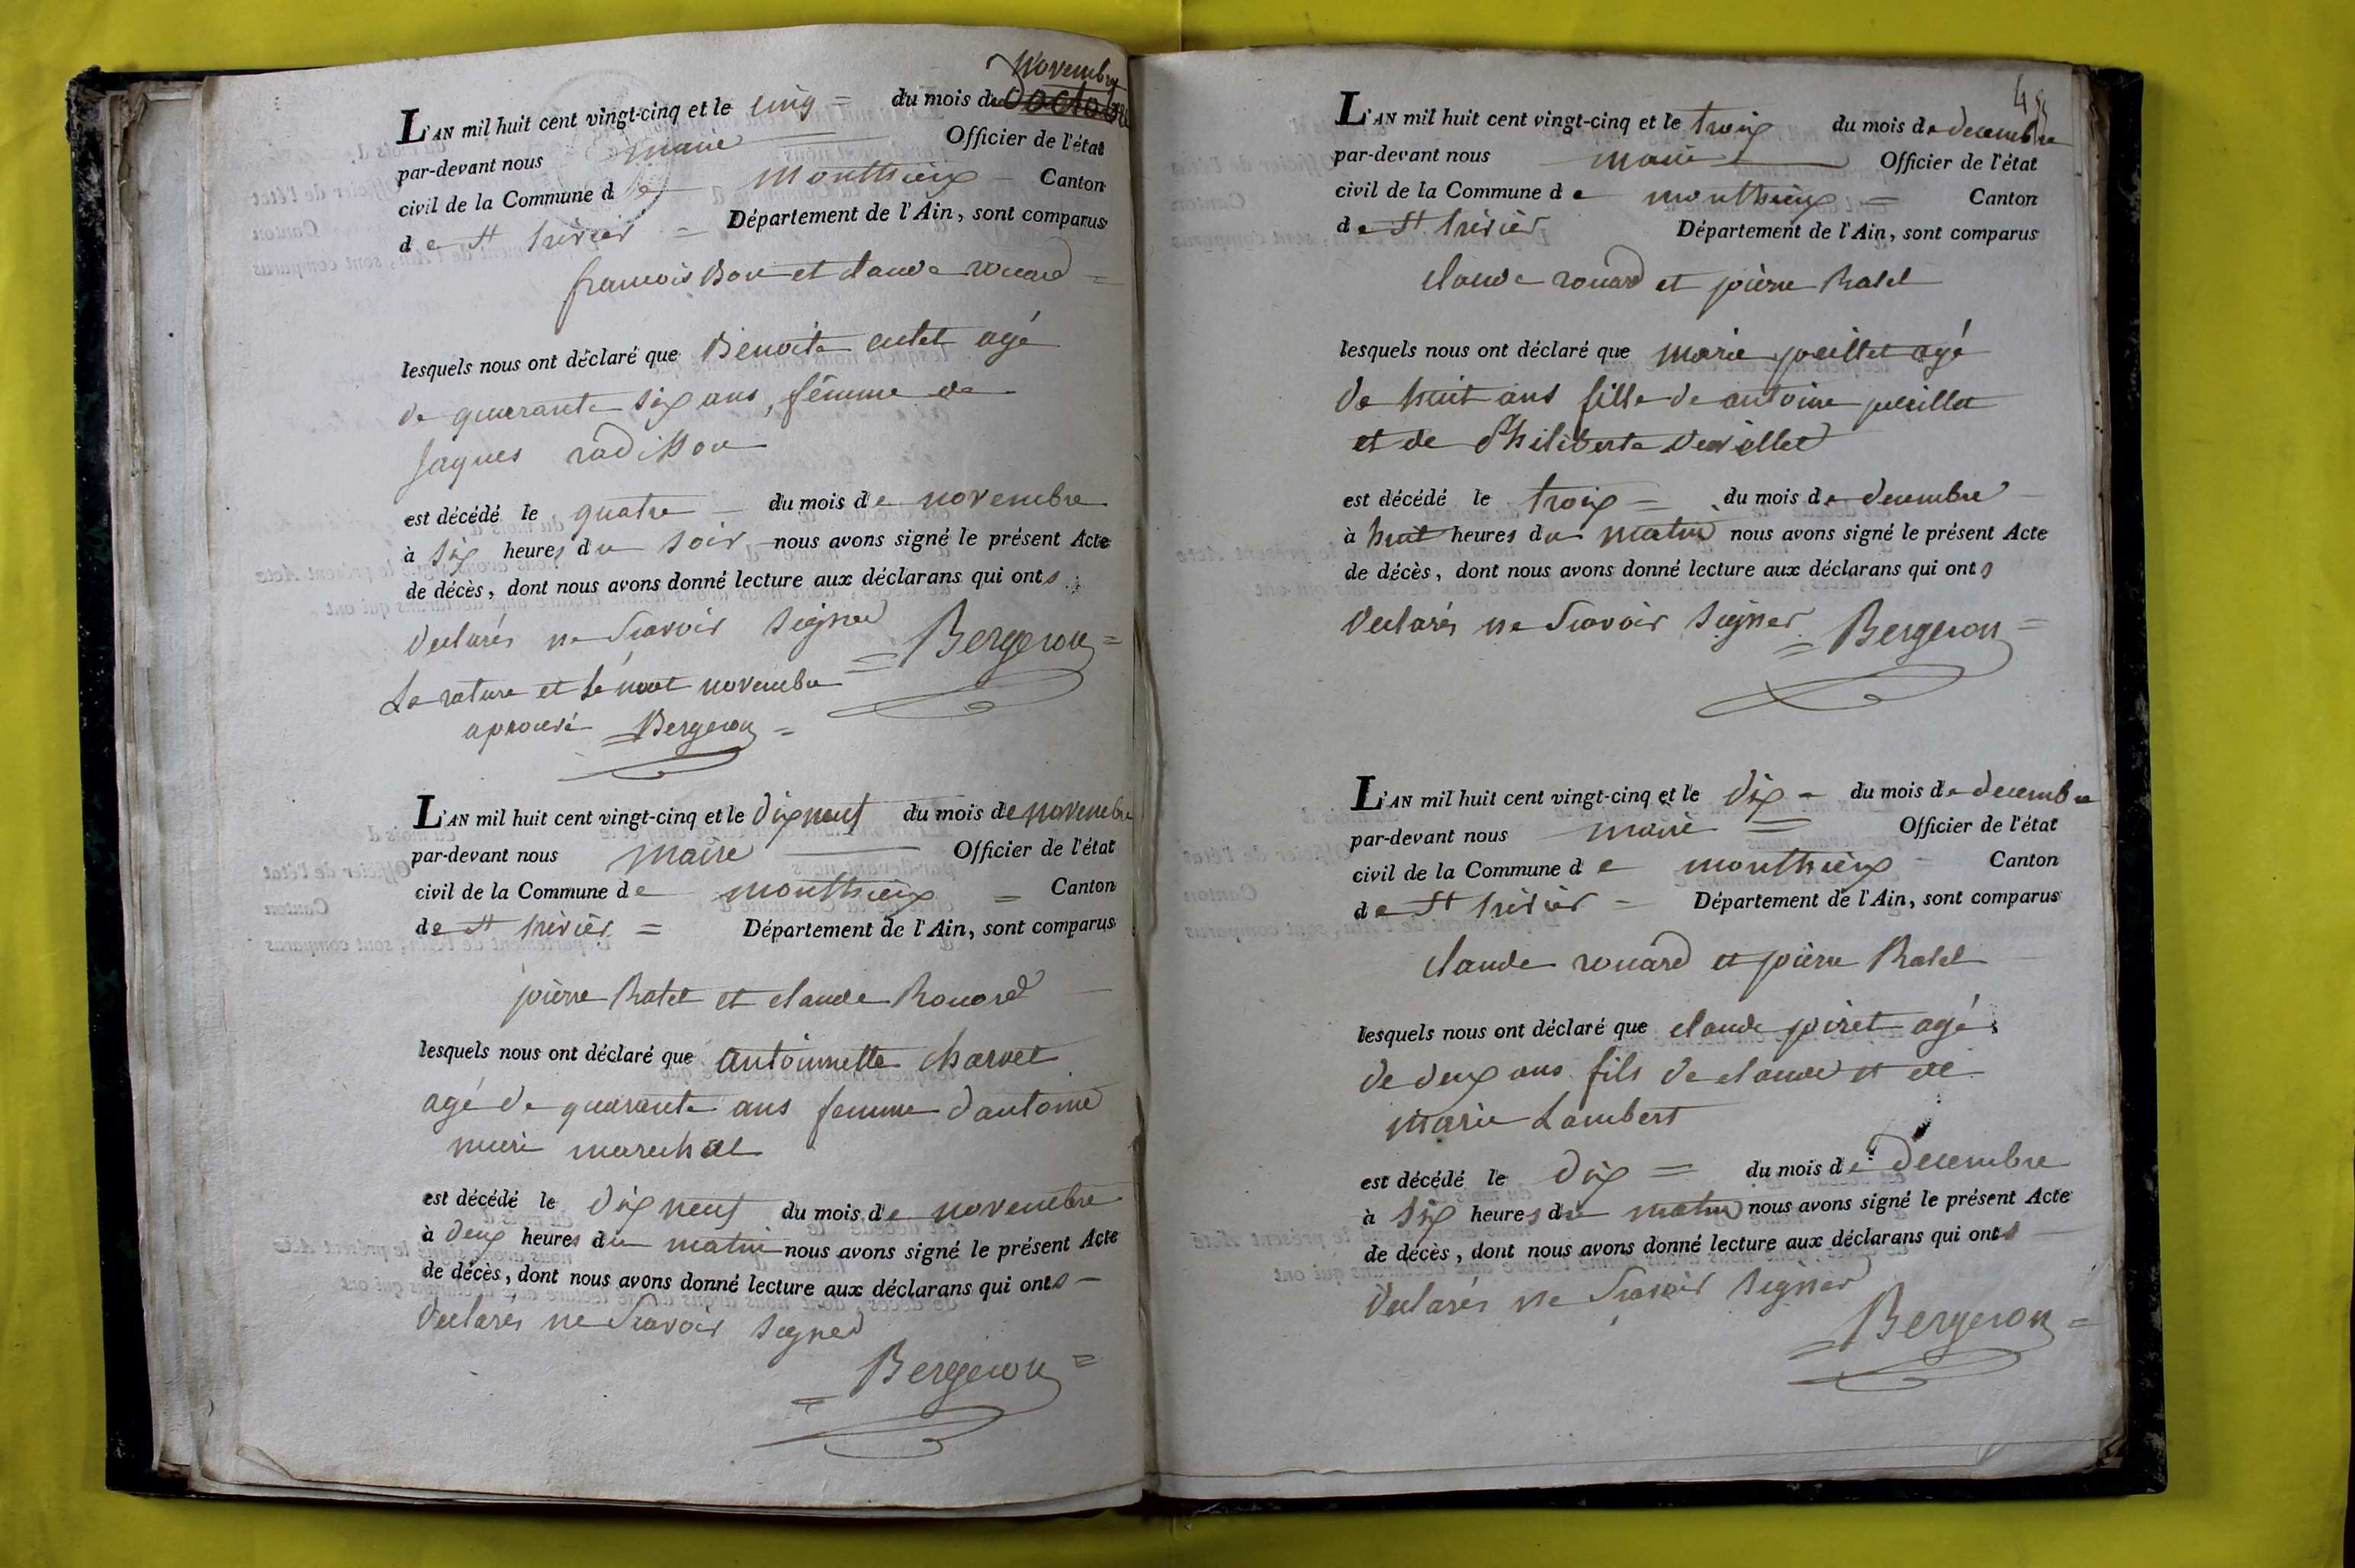 Novembre
L'AN mil huit cent vingt-cinq et le cinq = du mois de octobre
par-devant nous maire Officier de l'état
civil de la Commune de Monthieux Canton
de St trivier = Département de l'Ain, sont comparus
francois Bon et claude rouard =
lesquels nous ont déclaré que Benoite cutet agé
de quarante six ans, fémme de
Jaques radisson
est décédé le quatre du mois de novembre
à six heures du soir nous avons signé le présent Acte
de décès, dont nous avons donné lecture aux déclarans qui onts
declarés ne Scavoir signer
= Bergeron =
La rature et le mot novembre
aprouvé = Bergeron =
L'AN mil huit cent vingt-cinq et le dixneuf du mois de novembre
par-devant nous maire Officier de l'état
civil de la Commune de monthieux = Canton
de St trivier = Département de l'Ain, sont comparus
pierre Ratel et claude Rouard
lesquels nous ont déclaré que antoinette charvet
agé de quarante ans femme dantoine
muri marechal
est décédé le dix neuf du mois de novembre
à deux heures du matin nous avons signé le présent Acte
de décès, dont nous avons donné lecture aux déclarans qui onts
declarés ne Scavoir signer
= Bergeron =
45
L'AN mil huit cent vingt-cinq et le troix du mois de decembre
par-devant nous maire Officier de l'état
civil de la Commune de monthieux = Canton
de St trivier Département de l'Ain, sont comparus
claude rouard et pierre Ratel
lesquels nous ont déclaré que marie peillet agé
de huit ans fille de antoine peillet
et de Philiberte
est décédé le troix = du mois de decembre
à huit heures du matin nous avons signé le présent Acte
de décès, dont nous avons donné lecture aux déclarans qui onts
declarés ne Scavoir signer
= Bergeron =
L'AN mil huit cent vingt-cinq et le dix = du mois de decembre
par-devant nous maire = Officier de l'état
civil de la Commune de monthieux = Canton
de St trivier = Département de l'Ain, sont comparus
claude rouard et pierre Ratel
lesquels nous ont déclaré que claude poiret agé
de deux ans fils de claude et de
marie Lambert
est décédé le dix = du mois de decembre
à six heures du matin nous avons signé le présent Acte
de décès, dont nous avons donné lecture aux déclarans qui onts
declarés ne Scavoir signer
= Bergeron =